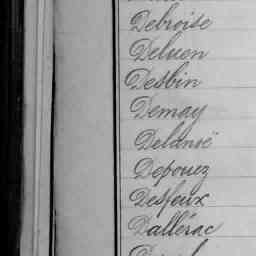 Debroise
Deluen
Desbin
Demay
Delanoë
Depouez
Desfeux
Dallérac